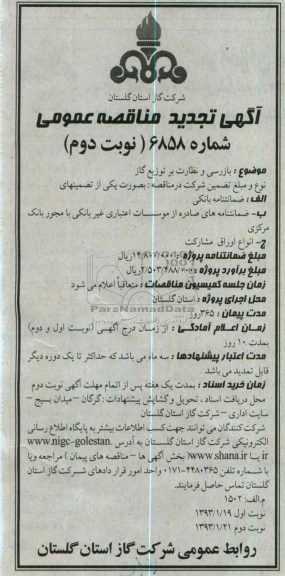 شرکت گاز استان گلستان
آگهی تجدید مناقصه عمومی
شماره ۶۸۵۸ ( نوبت دوم)
موضوع : بازرسی و نظارت بر توزیع گاز
نوع و مبلغ تضمین شرکت درمناقصه : بصورت یکی از تضمینهای
الف : ضمانتنامه بانکی
ب- ضمانتنامه های صادره از موسسات اعتباری غیر بانکی با مجوز بانک
مرکزی
ج- انواع اوراق مشارکت
مبلغ ضمانتنامه پروژه : ریال
مبلغ برآورد پروژه : ریال
زمان جلسه کمیسیون مناقصات : متعاقباً اعلام می شود
محل اجرای پروژه : استان گلستان
مدت پیمان : ۳۶۵روز
زمان اعلام آمادگی : از زمان درج آگهی (نوبت اول و دوم)
بمدت ۱۰ روز
مدت اعتبار پیشنهادها : سه ماه می باشد که حداکثر تا یک دوره دیگر
قابل تمدید می باشد
زمان خرید اسناد : بمدت یک هفته پس از اتمام مهلت آگهی نوبت دوم
محل دریافت اسناد ، تحویل و گشایش پیشنهادات : گرگان – میدان بسیج –
سایت اداری – شرکت گاز استان گلستان
شرکت کنندگان می توانند جهت کسب اطلاعات بیشتر به پایگاه اطلاع رسانی
الکترونیکی شرکت گاز استان گلستان به آدرس www.nigc-golestan.
ir یا www.shana.ir( بخش آگهی ها – مناقصه های پیمان ) مراجعه ویا
با شماره تلفن: ۴۴۸۰۳۶۵-۰۱۷۱ واحد امور قرار دادهای شرکت گاز استان
گلستان تماس حاصل فرمایند.
م.الف: ۱۵۰۲
نوبت اول ۱۳۹۳/۱/۱۹
نوبت دوم ۱۳۹۳/۱/۲۱
روابط عمومی شرکت گاز استان گلستان
ParsNamadData